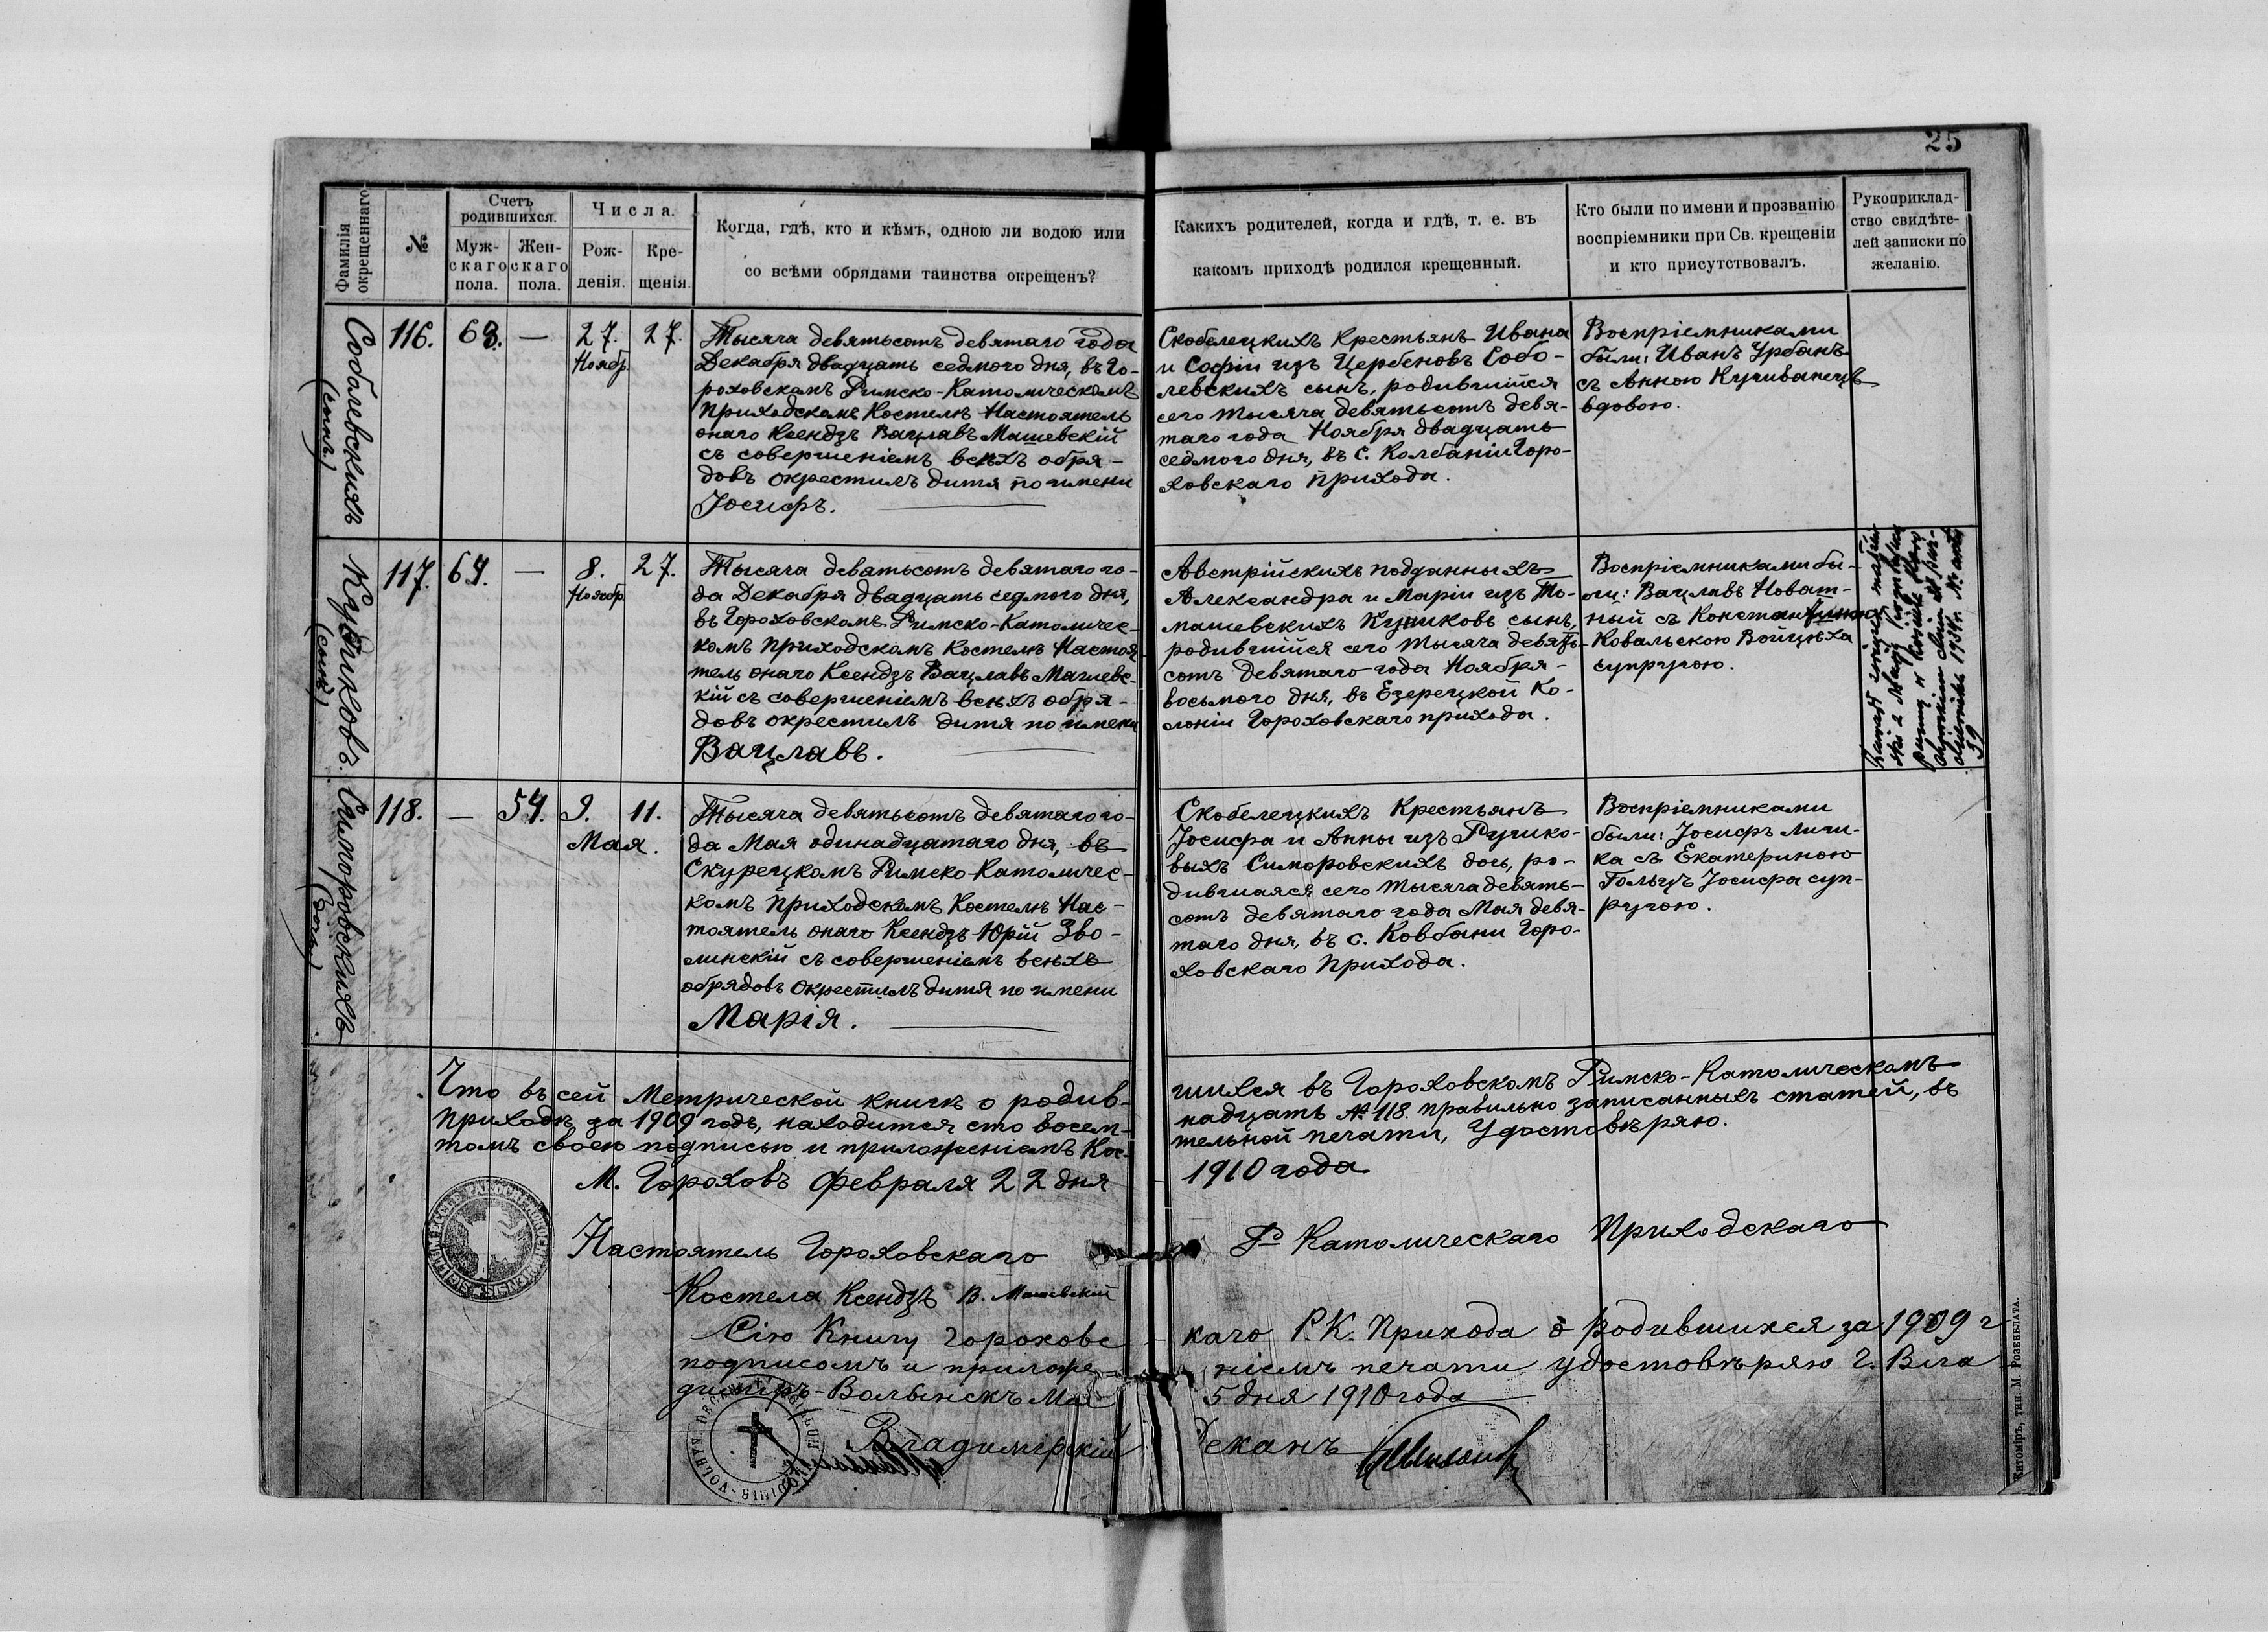 25
Фамилія
окрещеннаго
№
Счетъ
родившихся.
Муж-
скаго
пола.
Жен-
скаго
пола.
Числа.
Рож-
денія.
Кре-
щенія.
Когда, гдѣ, кто и кѣмъ, одною ли водою или
со всѣми обрядами таинства окрещенъ?
Какихъ родителей, когда и гдѣ, т. е. въ
какомъ приходѣ родился крещенный.
Кто были по имени и прозванію
воспріемники при Св. крещеніи
и кто присутствовалъ.
Рукоприклад-
ство свидѣте-
лей записки по
желанію.
Соболевскихъ
(сынъ)
116. 63. — 27. 27.
Ноябр.
Тысяча девятьсотъ девятаго года
Декабря двадцать седмого дня, въ Го-
роховскомъ Римско-Католическомъ
Приходскомъ Костелѣ Настоятель
онаго Ксендзъ Вацлавъ Машевскій
съ совершеніемъ всѣхъ обря-
довъ окрестилъ дитя по имени
Іосифъ.
Скобелецкихъ Крестьянъ Ивана
и Софіи изъ Цербеновъ Собо-
левскихъ сынъ, родившійся
сего тысяча девятьсотъ девя-
таго года Ноября двадцать
седмого дня, въ с. Колбаніи Горо-
ховскаго прихода.
Воспріемниками
были: Иванъ Урбанъ
съ Анною Кучиванецъ
вдовою.
(сынъ)
117. 64. — 8. 27.
Ноябр.
Тысяча девятьсотъ девятаго го-
да Декабря двадцать седмого дня,
въ Гороховскомъ Римско-Католичес-
комъ Приходскомъ Костелѣ Настоя-
тель онаго Ксендзъ Вацлавъ Машевс-
кій съ совершеніемъ всѣхъ обря-
довъ окрестилъ дитя по имени
Вацлавъ.
Австрійскихъ подданныхъ
Александра и Маріи изъ То-
машевскихъ сынъ,
родившійся сего тысяча девять-
сотъ девятаго года Ноября
восьмого дня, въ Езерецкой Ко-
лоніи Гороховскаго прихода.
Воспріемниками бы-
ли: Вацлавъ Новат-
ный съ Константиною
Ковальскою Войцѣха
супругою.
Симоровскихъ
(дочь)
118. — 54. 9. 11.
Мая.
Тысяча девятьсотъ девятаго го-
да Мая одинадцатаго дня, въ
Скурецкомъ Римско-Католичес-
комъ Приходскомъ Костелѣ Нас-
тоятель онаго Ксендзъ Юрій Зво-
линскій съ совершеніемъ всѣхъ
обрядовъ окрестилъ дитя по имени
Марія.
Скобелецкихъ Крестьянъ
Іосифа и Анны изъ Рушко-
выхъ Симоровскихъ дочь, ро-
дившаяся сего тысяча девять-
сотъ девятаго года Мая девя-
таго дня, въ с. Ковбани Горо-
ховскаго Прихода.
Воспріемниками
были: Іосифъ Личи-
ка съ Екатериною
Гольцъ Іосифа суп-
ругою.
Что въ сей Метрической книгѣ о родив-шихся въ Гороховскомъ Римско-Католическомъ
Приходѣ за 1909 годъ, находится сто восем-надцать № 118. правильно записанныхъ статей, въ
томъ своею подписью и приложеніемъ Кос-тельной печати, Удостовѣряю.
М. Гороховъ Февраля 22 дня 1910 года
Настоятель Гороховскаго Р Католическаго Приходскаго
Костела Ксендзъ В. Машевскій
Сію Книгу Гороховс-каго Р. К. Прихода о родившихся за 1909 г
подписомъ и приложе-ніемъ печати удостовѣряю г. Вла
диміръ-Волынскъ Мая 5 дня 1910 года
Владимірскій Деканъ
Житоміръ, тип. М. Розенблата.